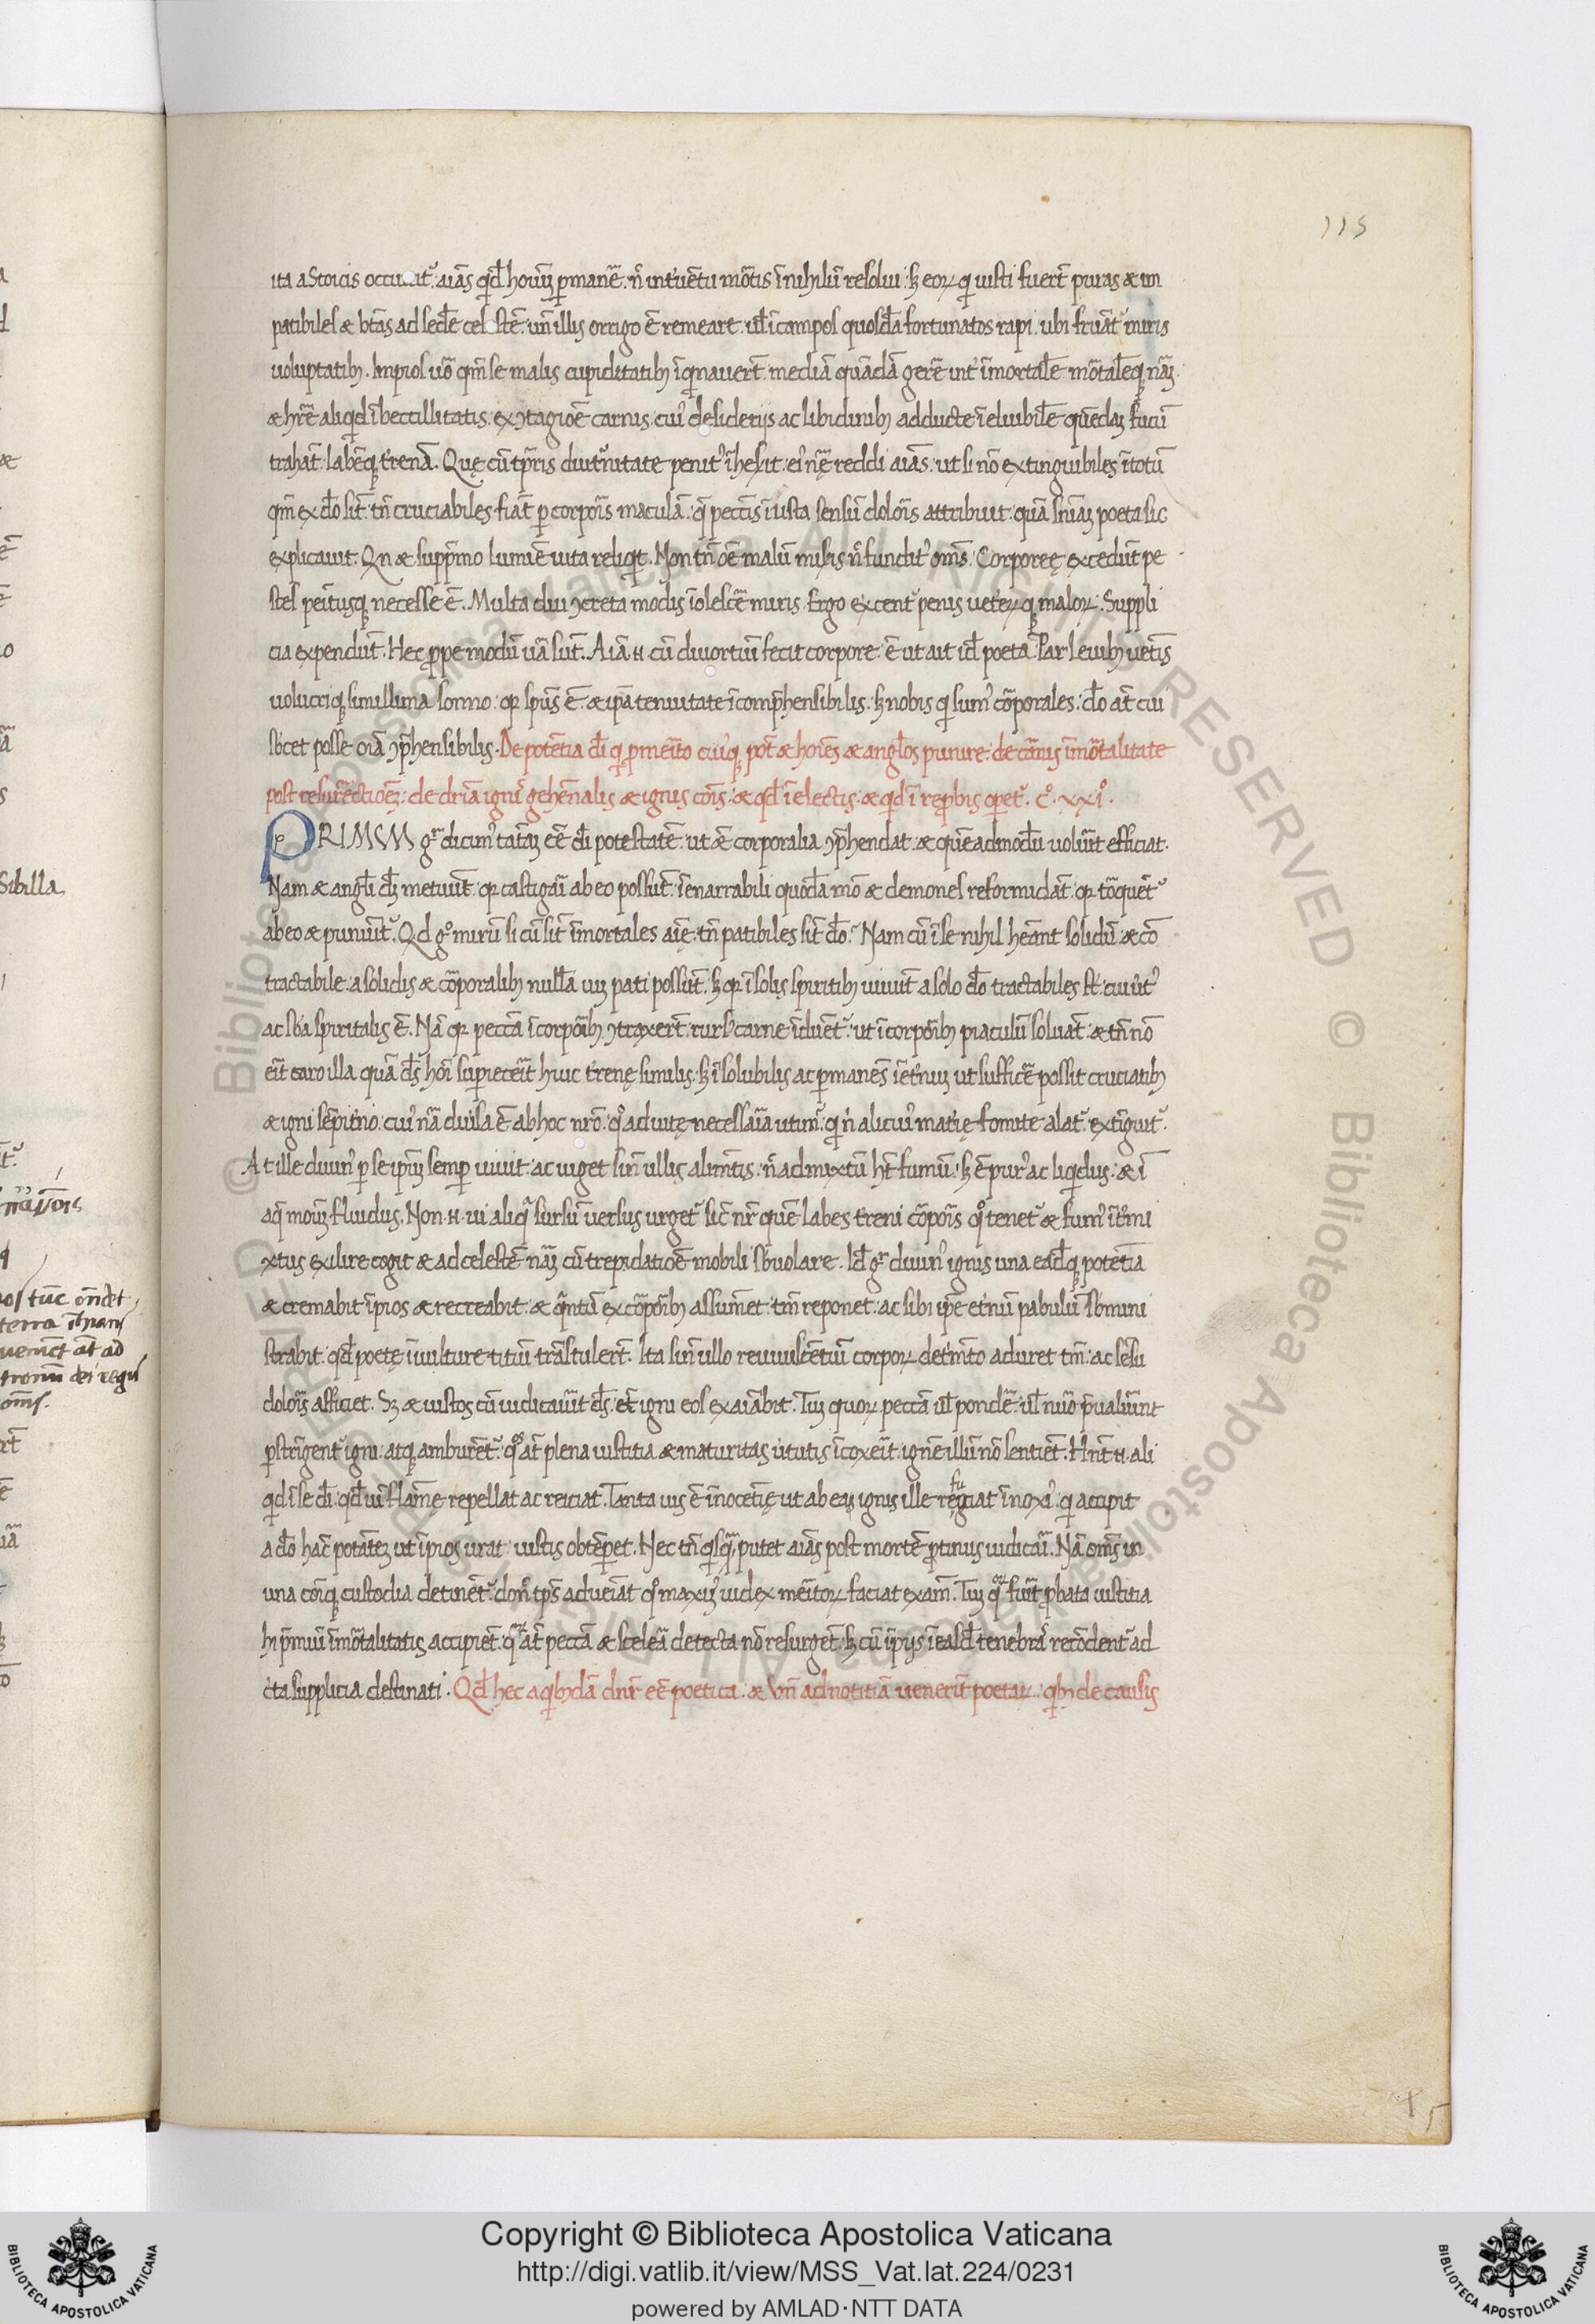 115
ita a Stoicis occu it᷑. aiās qd̄ hoium ꝑmanē. n̄ int̓uētu mōtis ī nihilū resolui. sꝫ eoꝝ q̇ iusti fuer̄t puras & im
patibiles & btās ad sedē celestē. un̄ illis orrigo ē remeare. ul̄ ī campos quosdā fortunatos rapi. ubi fruāt᷑ miris
uoluptatibꝫ. Impios uō qm̄ se malis cupiditatibꝫ īq̇nauer̄t. mediā quādā gerē int̓ īmortalē mōtalēqꝫ nāꝫ.
& hr̄e aliq̇d ībecillitatis. ex ꝯtagiōe carnis. cui᷒ desiderijs ac libidinibꝫ adducte īeluibilē quēdaꝫ fucū
trahāt. labēqꝫ t̓renā. Quę cū tp̄ris diut᷑nitate penit᷒ īheserit. ei᷒ nę̄ reddi aiās. ut si nō extinguibiles ī totū
qm̄ ex dō sīt. tn̄ cruciabiles fiāt ꝑ corpōis maculā. q̄ pectīs īusta sensū dolōis attribuit. quā sn̄iaꝫ poeta sic
explicauit. Qn & supp̄mo lumīe uita reliq̇t. Non tn̄ oē malū misis n̄ fundit᷒ om̄s. Corporeę excedūt pe
stes peītusqꝫ necesse ē. Multa diu ꝯcreta modis īolescē miris. Ergo excent᷑ penis uet̓eꝝ qꝫ maloꝝ. Suppli
cia expendūt. Hec ꝓpe modū uā sūt. Aiā .n. cū diuortiū fecit corpore. ē ut ait id̄ poeta. Par leuibꝫ uētis
uolucriqꝫ simillima somno. qꝛ sp̄us ē. & ip̄a tenuitate īcomp̄hensibilis. sꝫ nobis q̇ sum᷒ cōporales. dō āt cui
sb̓cet posse oīa ꝯp̄hensibilis. De potētia dī q̇ ꝓ meīto cui᷒qꝫ pōt & hoīes & angl̄os punire. de cānis īmōtalitate
post resurrēctioēꝫ. de dr̄ia ignis gehēnalis & ignis cōis. & qd̄ ī electis. & qd̄ ī reꝓbis oꝑet᷑. c̊. xxi̊.
PRIMUM gͦ dicim᷒ tātaꝫ eē dī potestatē. ut & ē corporalia ꝯp̄hendat. & quēadmodū uolūit efficiat.
Nam & angl̄i dꝫ metuūt. qꝛ castigāi ab eo possūt. īenarrabili quodā mō & demones reformidāt. qꝛ tōquēt᷑
ab eo & puniūt᷑. Qd gͦ mirū si cū sīt īmortales aię. tn̄ patibiles sīt dō? Nam cū ī se nihil hēant solidū & cō
tractabile. a solidis & cōporalibꝫ nullā uiꝫ pati possūt. sꝫ qꝛ ī solis spiritibꝫ uiuūt a solo dō tractabiles st̄. cui᷒ ūt᷒
ac sb̄a spiritalis ē. Nā qꝛ peccā ī corpōibꝫ ꝯtraxer̄t. rurs᷒ carne īduēt᷑. ut ī corpōibꝫ piaculū soluāt. & tn̄ nō
eīt caro illa quā dꝰs hoī supieceīt huic t̓renę similis. sꝫ īsolubilis ac ꝑmanēs īet̓nuꝫ ut sufficē possit cruciatibꝫ
& igni sēpit̓no. cui᷒ nā diuīsa ē ab hoc nr̄o. qͦ ad uitę necessaīa utim᷑. q̇ n̄ alicui᷒ matię fomite alat᷑. extīguit᷑.
At ille diuin᷒ ꝑ se ip̄uꝫ semꝑ uiuit. ac uiget sin̄ ullis alimtīs. n̄ admixtū ht̄ fumū. sꝫ ē pur᷒ ac liq̇dus. & ī
aq̄ moꝫ fluidus. Non .n. ui aliq̄ sursū uersus urget᷑ sic̄ nr̄ quē labes t̓reni cōpōis qͦ tenet᷑ & fum᷒ īt̓mi
xtus exilire cogit & ad celestē nāꝫ cū trepidatiōe mobili sb̓uolare. Id̄ gͦ diuin᷒ ignis una eādqꝫ potētia
& cremabit īpios & recreabit. & q̄ntū ex cōpōibꝫ assumet. tm̄ reponet. ac sibi ip̄e et̓nū pabulū sb̓mini
strabit. qd̄ poetę ī uulture titiū trāstuler̄t. Ita sin̄ ullo reuiuiscētiū corpoꝝ det̓imto aduret tm̄. ac sēsu
dolōis afficiet. Sꝫ & iustos cū iudicauīt dꝰs. et̄ igni eos exaiābit. Tū quoꝝ peccā ul̄ pondē. ul̄ nūo p̄ualūint
ꝑstrīgent᷑ igni. atqꝫ amburēt᷑. qͦs āt plena iustitia & maturitas ūtutis īcoxeīt. ignē illū nō sentiēt. Hn̄t .n. ali
qd ī se dī. qd̄ uī flāmę repellat ac reiciat. Tanta uis ē īnocētię ut ab eaꝫ ignis ille refugiat īnoxi᷒. q̇ accipit
a dō hāc potātēꝫ ut īpios urat. iustis obtēꝑet. Nec tn̄ q̇sq̄ putet aiās post mortē ꝓtinus iudicāi. Nā om̄s in
una cōiqꝫ custodia detinēt᷑. donͦ tp̄s adueīat qͦ maxi᷒ iudex meītoꝝ faciat exam̄. Tū qͦꝝ fuīt ꝓbata iustitia
hi p̄miū īmōtalitatis accipiēt. qͦꝝ āt peccā & sceleā detecta nō resurgēt. sꝫ cū īpijs īeasd̄ tenebrā recōdent᷑ ad
c̓ta supplicia destinati. Qd̄ hec a q̇bꝫdā dnr̄ eē poetica. & un̄ ad notitiā uenerīt poetaꝝ. q̇bꝫ de causis
Sibilla
Copyright © Biblioteca Apostolica Vaticana
http://digi.vatlib.it/view/MSS_Vat.lat.224/0231
powered by AMLAD·NTT DATA
BIBLIOTECA APOSTOLICA VATICANA
BIBLIOTECA APOSTOLICA VATICANA